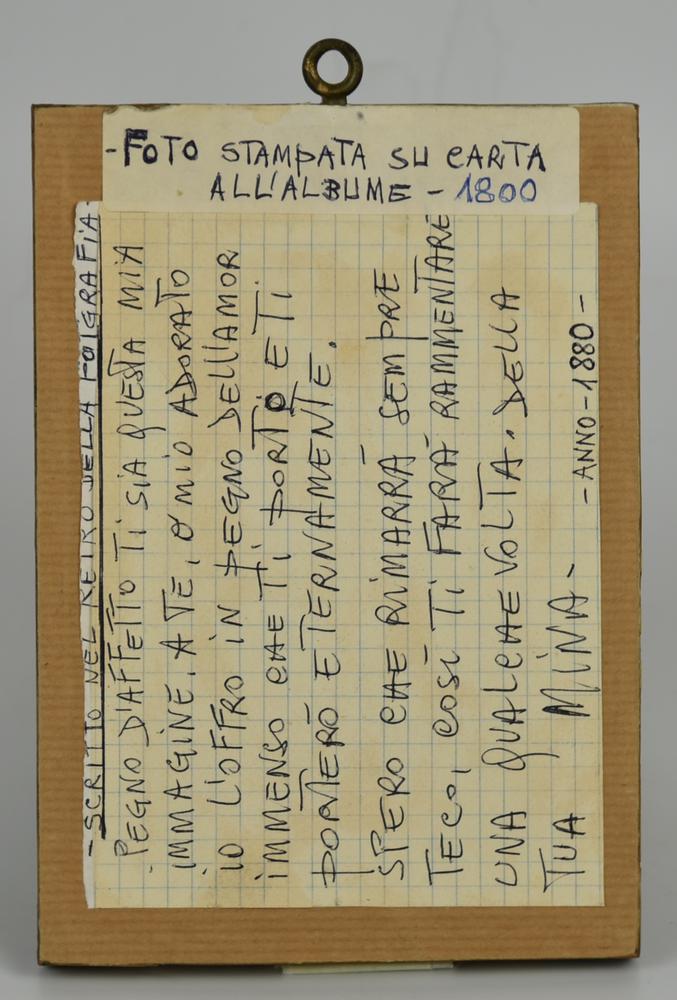 -FOTO STAMPATA SU CARTA
ALL'ALBUME - 1800
- SCRITTO NEL RETRO DELLA FOTGRAFIA-
PEGNO D'AFFETTO TI SIA QUESTA MIA
IMMAGINE. A TE, O MIO ADORATO
IO L'OFFRO IN PEGNO DELL'AMOR
IMMENSO CHE TI PORTO E TI
PORTERÒ ETERNAMENTE.
SPERO CHE RIMARRÀ SEMPRE
TECO, COSÌ TI FARÀ RAMMENTARE
UNA QUALCHE VOLTA. DELLA
TUA MINA-
-ANNO-1880-